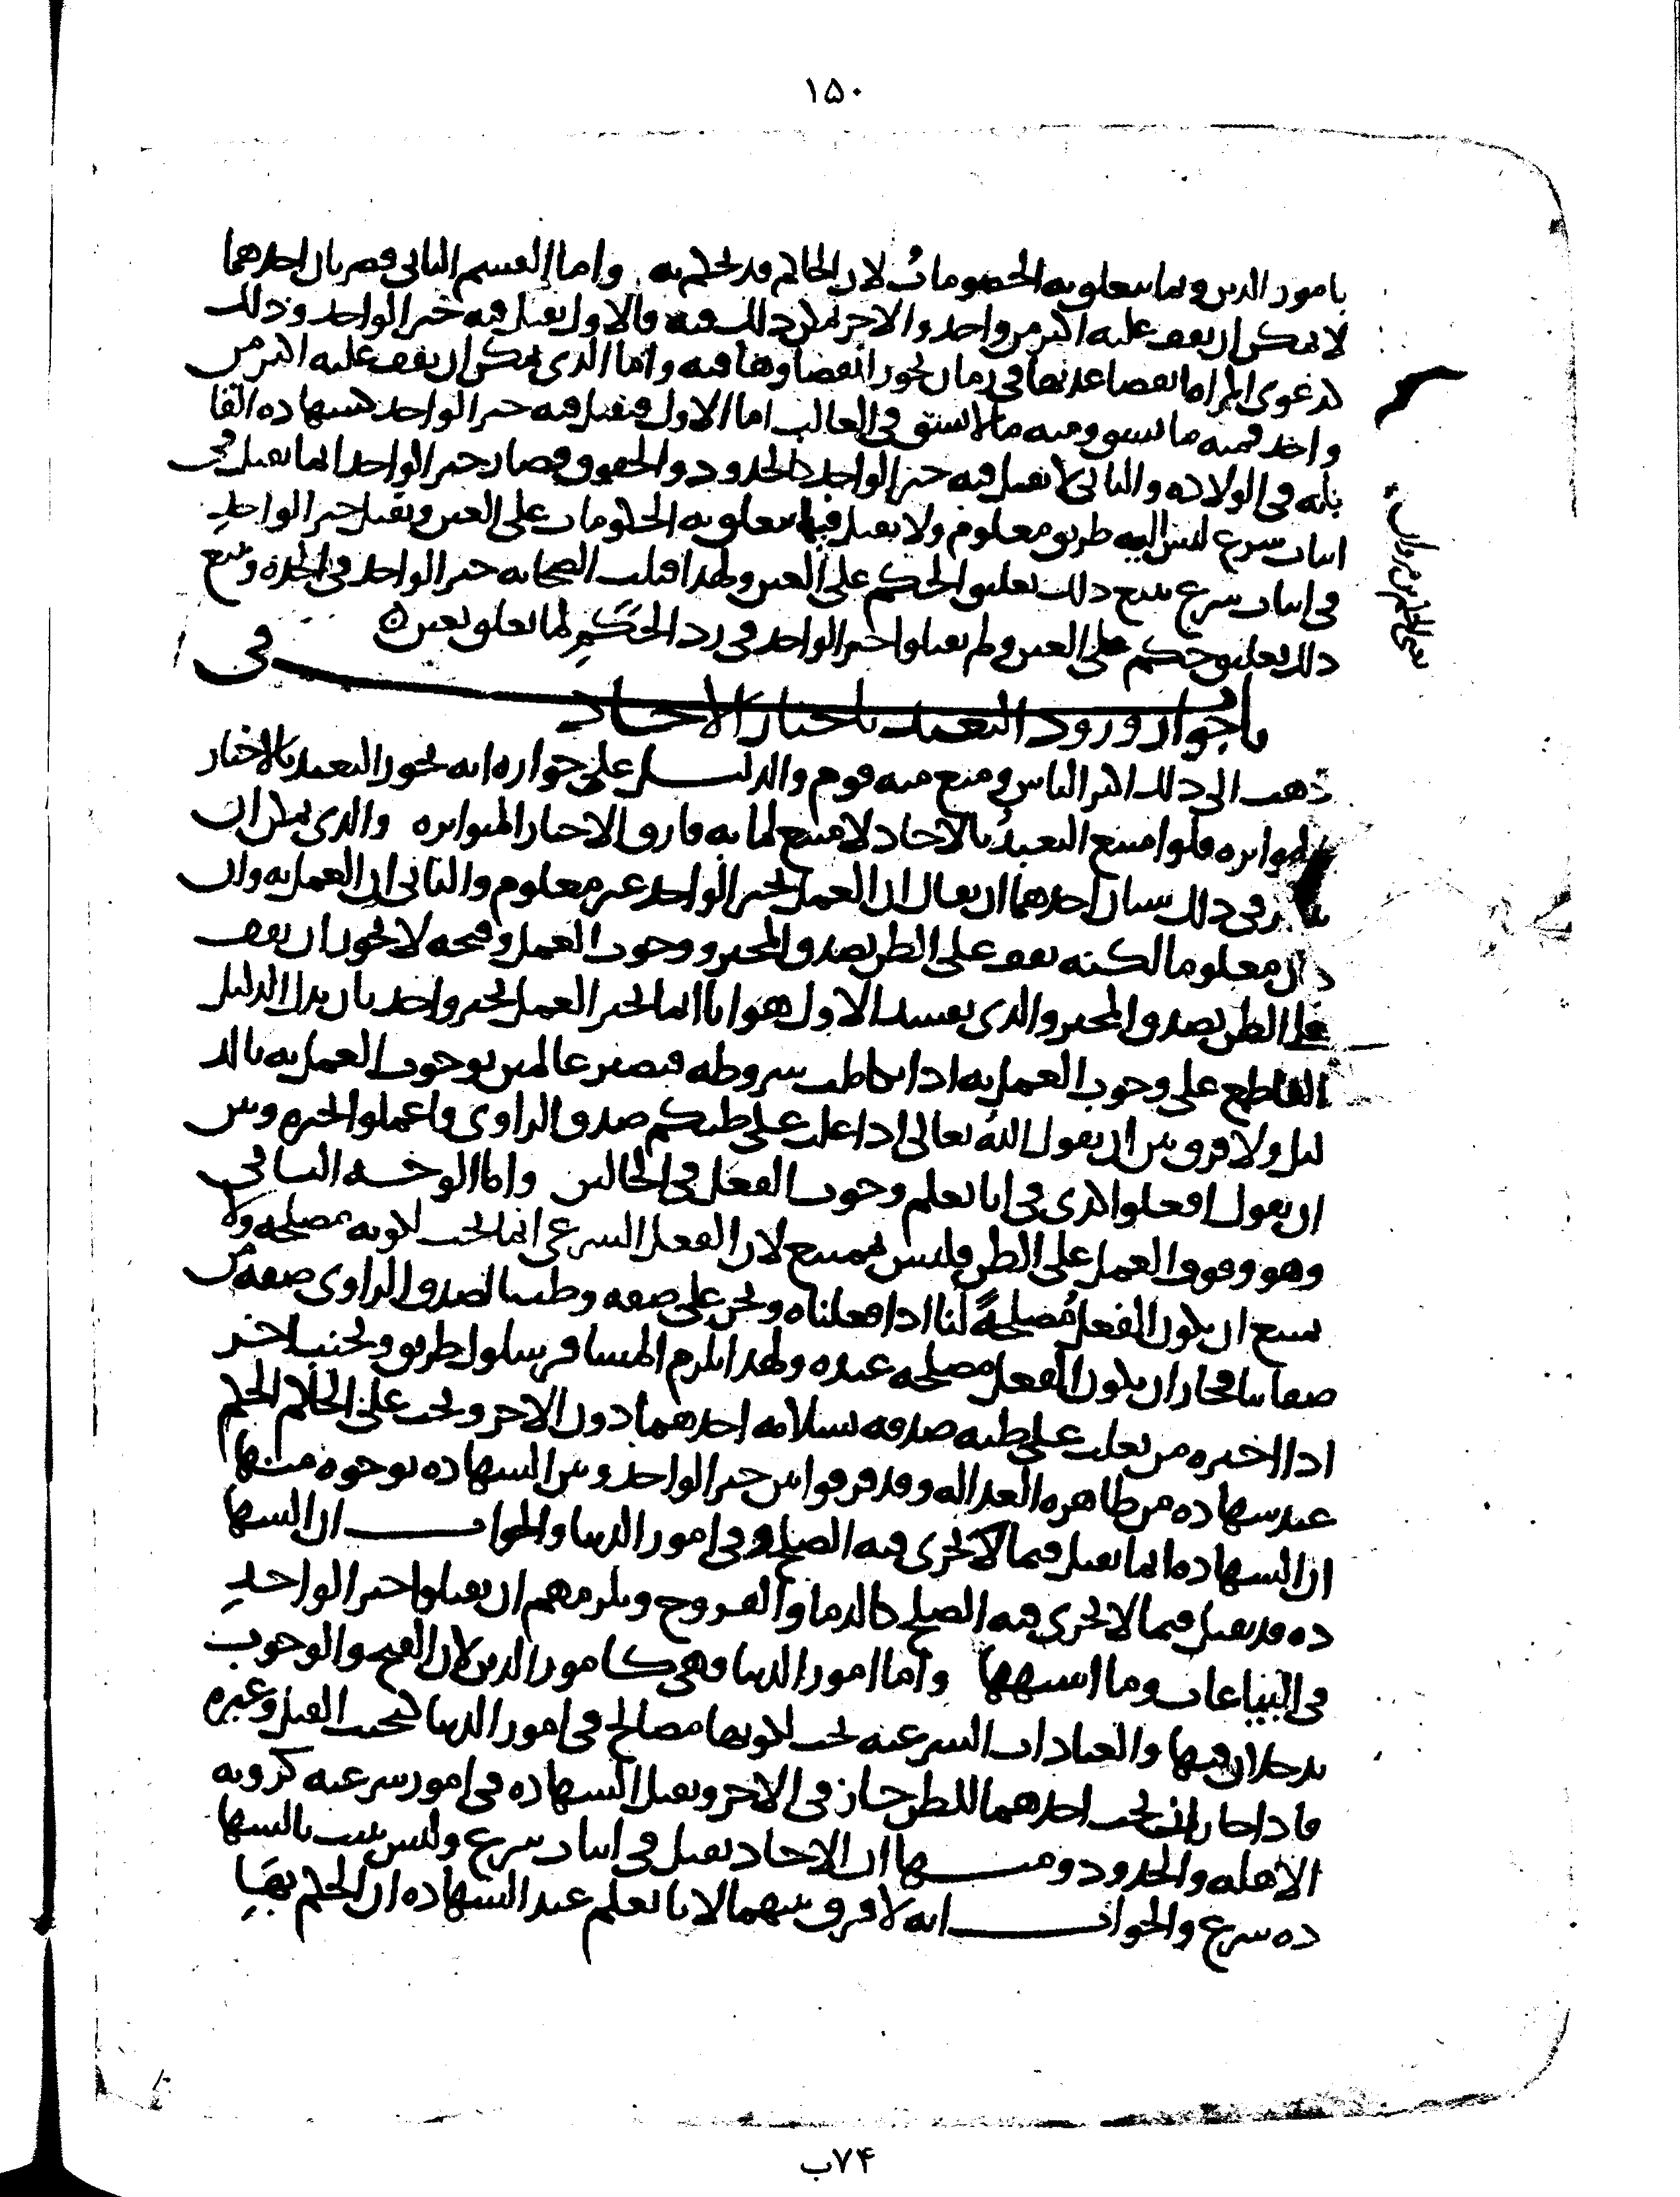 ١۵٠
بامور الدين وبما يتعلق به الخصومات لان الحاكم قد يحكم به واما القسم الثاني فضربان احدهما
لا يمكن ان يقف عليه اكثر من واحد والاخر يمكن ذلك فيه فالاول يقبل فيه خبر الواحد وذلك
كدعوى المراه انقضا عدتها في زمان يجوز انقضاوها فيه واما الذي يمكن ان يقف عليه اكثر من
واحد فمنه ما يشق ومنه ما لا يشق في الغالب اما الاول فيقبل فيه خبر الواحد كشهاده القا
بله في الولاده والثاني لا يقبل فيه خبر الواحد كالحدود والحقوق فصار خبر الواحد انما يقبل في
اثبات شرع ليس اليه طريق معلوم ولا يقبل فيما يتعلق به الحكومات على العين ويقبل خبر الواحد
في اثبات شرع يتبع ذلك تعليق الحكم على العين ولهذا قبلت الصحابه خبر الواحد في الجده وتبع
ذلك تعليق حكم على العين ولم يقبلوا خبر الواحد في رد الحكم لما تعلق بعين ه
في
باب جواز ورود التعبد باخبار الاحاد
ذهب الى ذلك اكثر الناس ومنع منه قوم والدليل على جوازه انه يجوز التعبد بالاخبار
المتواتره فلو امتنع التعبد بالاحاد لامتنع لما به فارق الاخبار المتواتره والذي يمكن ان
في ذلك شيئان احدهما ان يقال ان العمل بخبر الواحد غير معلوم والثاني ان العمل به وان
كان معلوما لكنه يقف على الظن بصدق المخبر ووجوب العمل وقبحه لا يجوز ان يقف
على الظن بصدق المخبر والذي يفسد الاول هو انا انما يجب العمل بخبر واحد بان يدل الدليل
القاطع على وجوب العمل به اذا تكاملت شروطه فنصير عالمين بوجوب العمل به بالد
ليل ولا فرق بين ان يقول الله تعالى اذا غلب على ظنكم صدق الراوي فاعملوا بخبره وبين
ان يقول افعلوا كذي في انا نعلم وجوب الفعل في الحالين واما الوجه الثاني
وهو وقوف العمل على الظن فليس بممتنع لان الفعل الشرعي انما يجب لكونه مصلحه ولا
يمتنع ان يكون الفعل مصلحةً لنا اذا فعلناه ونحن على صفه وظننا لصدق الراوي صفه من
صفاتنا فجاز ان يكون الفعل مصلحه عنده ولهذا يلزم المسافر سلوك طريق وتجنب اخر
اذا اخبره من يغلب على ظنه صدقه بسلامه احدهما دون الاخر ويجب على الحاكم الحكم
عند شهاده من ظاهره العداله وقد فرقوا بين خبر الواحد وبين الشهاده بوجوه منها
ان الشهاده انما تقبل فيما لا يجرى فيه الصلح وفي امور الدنيا والجواب ان الشها
ده قد تقبل فيما لا يجرى فيه الصلح كالدما والفروج ويلزمهم ان يقبلوا خبر الواحد
في البياعات وما اشبهها واما امور الدنيا فهي كامور الدين لان القبح والوجوب
يدخلان فيها والعبادات الشرعيه تجب لكونها مصالح في امور الدنيا كتجنب القتل وغيره
فاذا جاز ان يجب احدهما للظن جاز في الاخر وتقبل الشهاده في امور شرعيه كرويه
الاهله والحدود ومنها ان الاحاد تقبل في اثبات شرع وليس يثبت بالشها
ده شرع والجواب انه لا فرق بينهما لانا نعلم عند الشهاده ان الحكم بها
٧۴ب